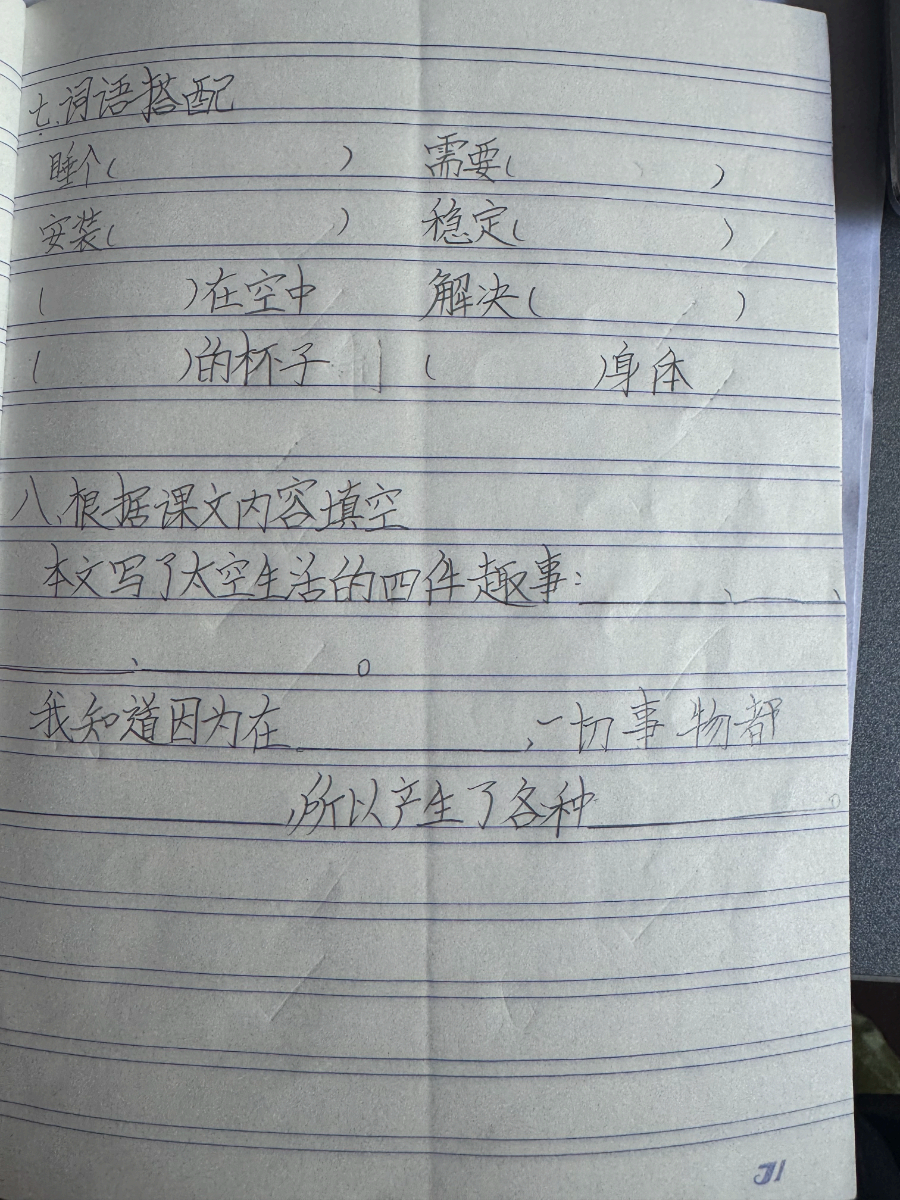 七.词语搭配
睡个(　　　　　)　需要(　　　　　)
安装(　　　　　)　稳定(　　　　　)
(　　　　　)在空中　解决(　　　　　)
(　　　　　)的杯子　(　　　　　)身体
八、根据课文内容填空
本文写了太空生活的四件趣事:________、________、
________、____________。
我知道因为在____________,一切事物都
____________,所以产生了各种____________。
31